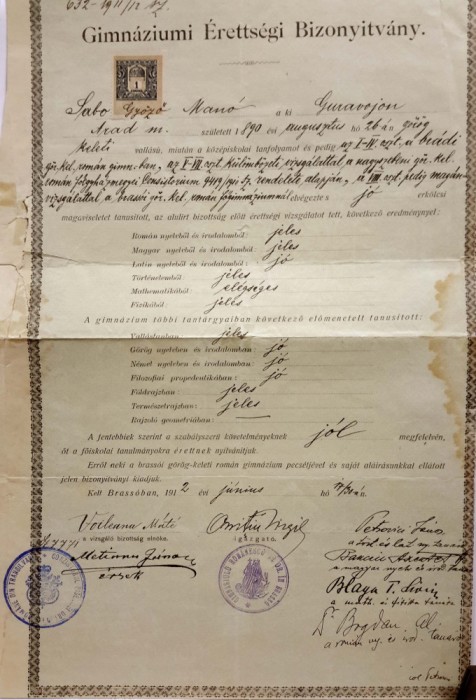 632-1911/12
Gimnáziumi Érettségi Bizonyitvány.
1
Sabo Győző Manó a ki Guravojon
Arad m. született 1890 évi augusztus hó 26 án görög
keleti vallásu, miután a középiskolai tanfolyamot és pedig az I-IV oszt. a brádi
gör. kel. román gimn.-ban, az V-VII. oszt. különbözeti vizsgálattal a nagyszebeni gör. kel.
román főegyházmegyei Consistorium rendelete alapján, a VIII. oszt. pedig magán-
vizsgálattal a brassói gör. kel. román főgimnáziumnál elvégezte s jó erkölcsi
magaviseletet tanusitott, az alulirt bizottság előtt érettségi vizsgálatot tett, következő eredménynyel:
Román nyelvből és irodalomból: jeles
Magyar nyelvből és irodalomból: jeles
Latin nyelvből és irodalomból: jó
Történelemből: jeles
Mathematikából: elégséges
Fizikából: jeles
A gimnázium többi tantárgyaiban következő előmenetelt tanusitott:
Vallástanban: jeles
Görög nyelvben és irodalomban: jó
Német nyelvben és irodalomban: jó
Filozofiai propedeutikában: jó
Földrajzban: jeles
Természetrajzban: jeles
Rajzoló geometriában: —
A fentebbiek szerint a szabályszerű követelményeknek jól megfelelvén,
őt a főiskolai tanulmányokra érettnek nyilvánitjuk.
Erről neki a brassói görög-keleti román gimnázium pecsétjével és saját aláirásunkkal ellátott
jelen bizonyitványt kiadjuk.
Kelt Brassóban, 1912 évi június hó
a vizsgáló bizottság elnöke.
igazgató.
Metianu János
érsek
Blaga T. Liviu
a math. és fizika tanára
Dr Bogdan
a román ny. és irod. tanára